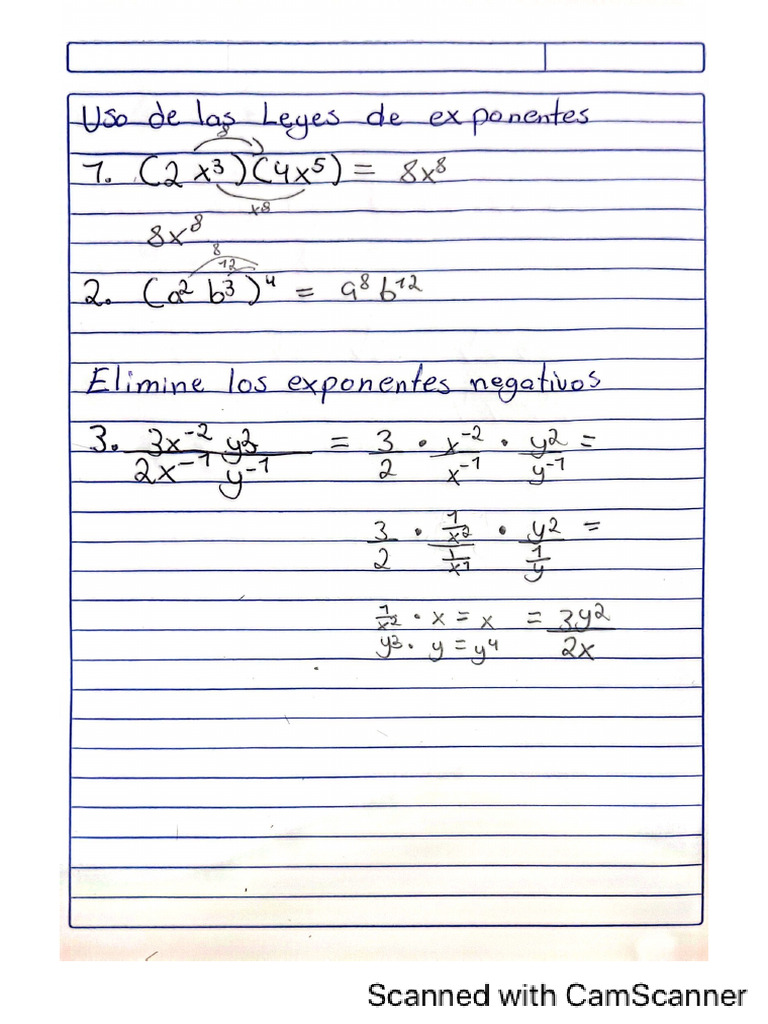 Uso de las Leyes de exponentes
8
1. (2x³)(4x⁵) = 8x⁸
x8
8x⁸
8
12
2. (a² b³)⁴ = a⁸ b¹²
Elimine los exponentes negativos
3. 3x⁻² y³ / 2x⁻¹ y⁻¹ = 3/2 · x⁻²/x⁻¹ · y²/y⁻¹ =
3/2 · (1/x²)/(1/x¹) · y²/(1/y) =
1/x² · x = x = 3y²/2x
y³ · y = y⁴
Scanned with CamScanner